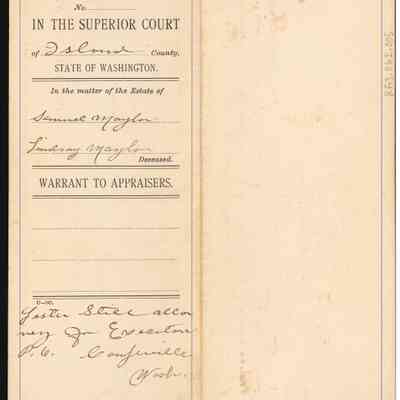 No.
IN THE SUPERIOR COURT
of Island County,
STATE OF WASHINGTON.
In the matter of the Estate of
Samuel Maylor
Lindsay Maylor
Deceased.
WARRANT TO APPRAISERS.
Lester Still attor
ney for Executors
P.O. Coupeville
Wash.